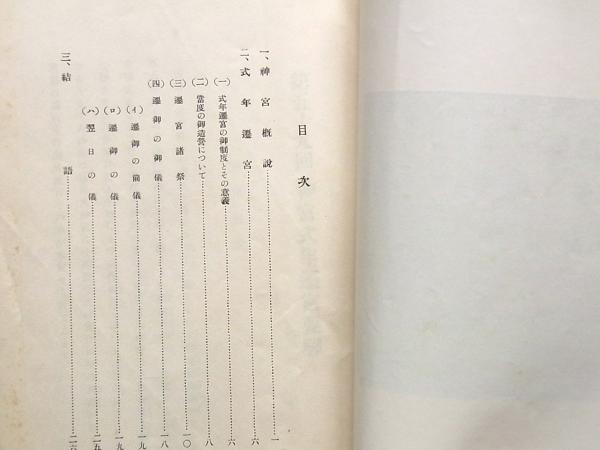 目次
一、神宮概說……一
二、式年遷宮……六
(一) 式年遷宮の御制度とその意義……六
(二) 當度の御造營について……八
(三) 遷宮諸祭……一〇
(四) 遷御の御儀……一八
(イ) 遷御の前儀……一九
(ロ) 遷御の儀……一九
(ハ) 翌日の儀……二五
三、結語……二六